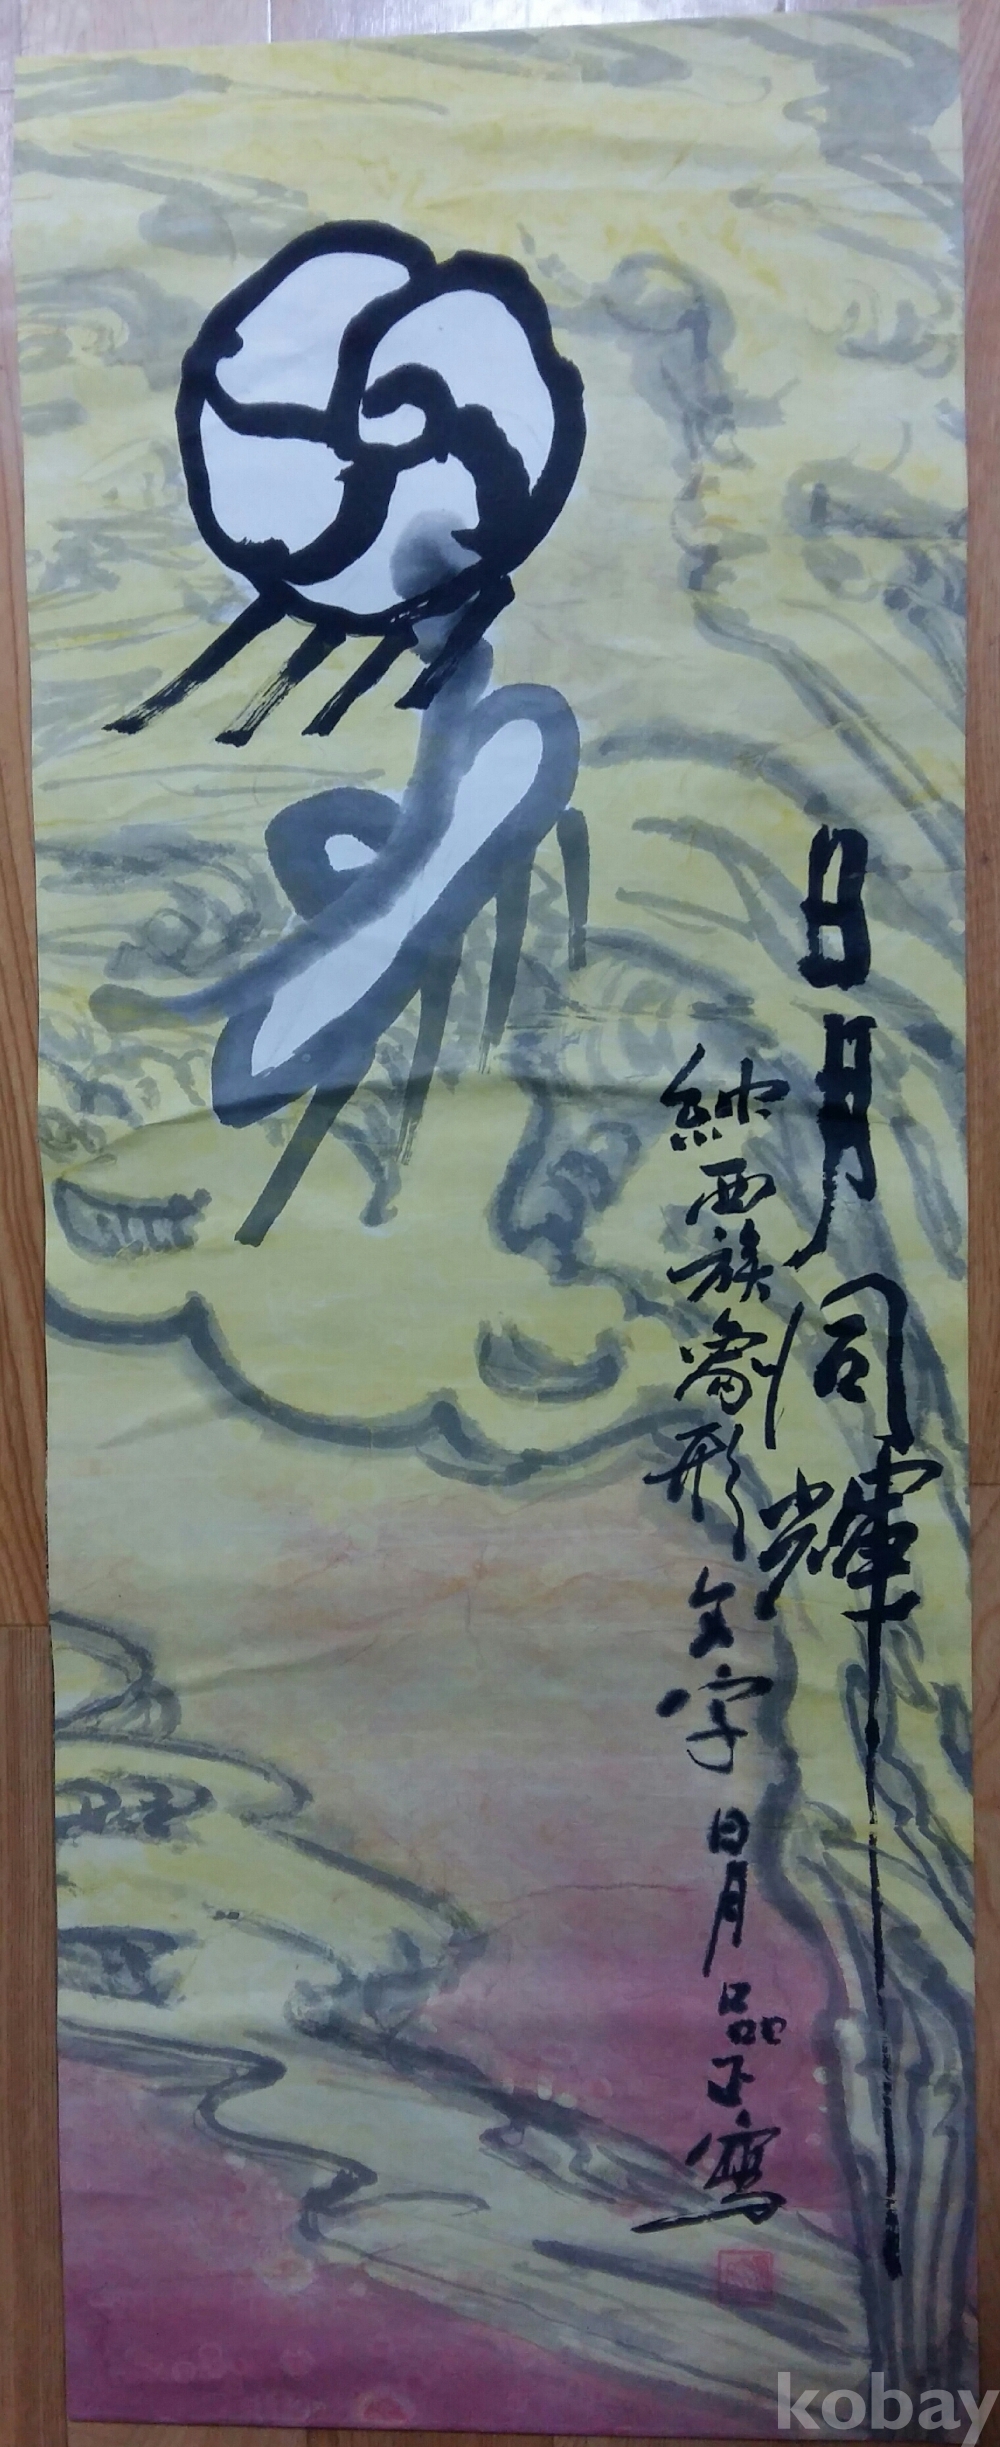 日月同輝
納西族象形文字 日月 品子寫
kobay